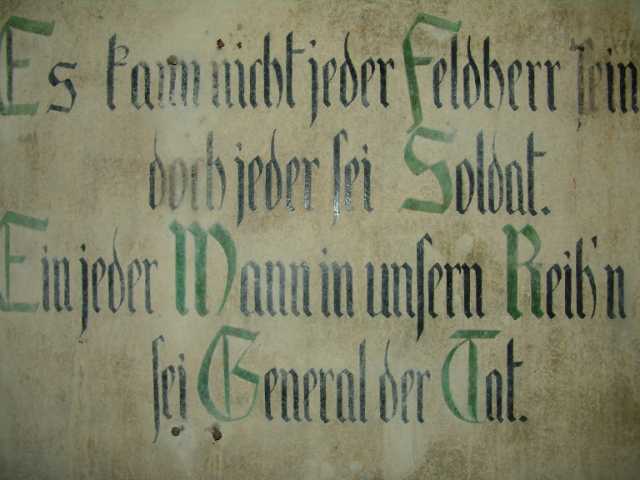 Es kann nicht jeder Feldherr sein
doch jeder sei Soldat.
Ein jeder Mann in unsern Reih'n
sei General der Tat.